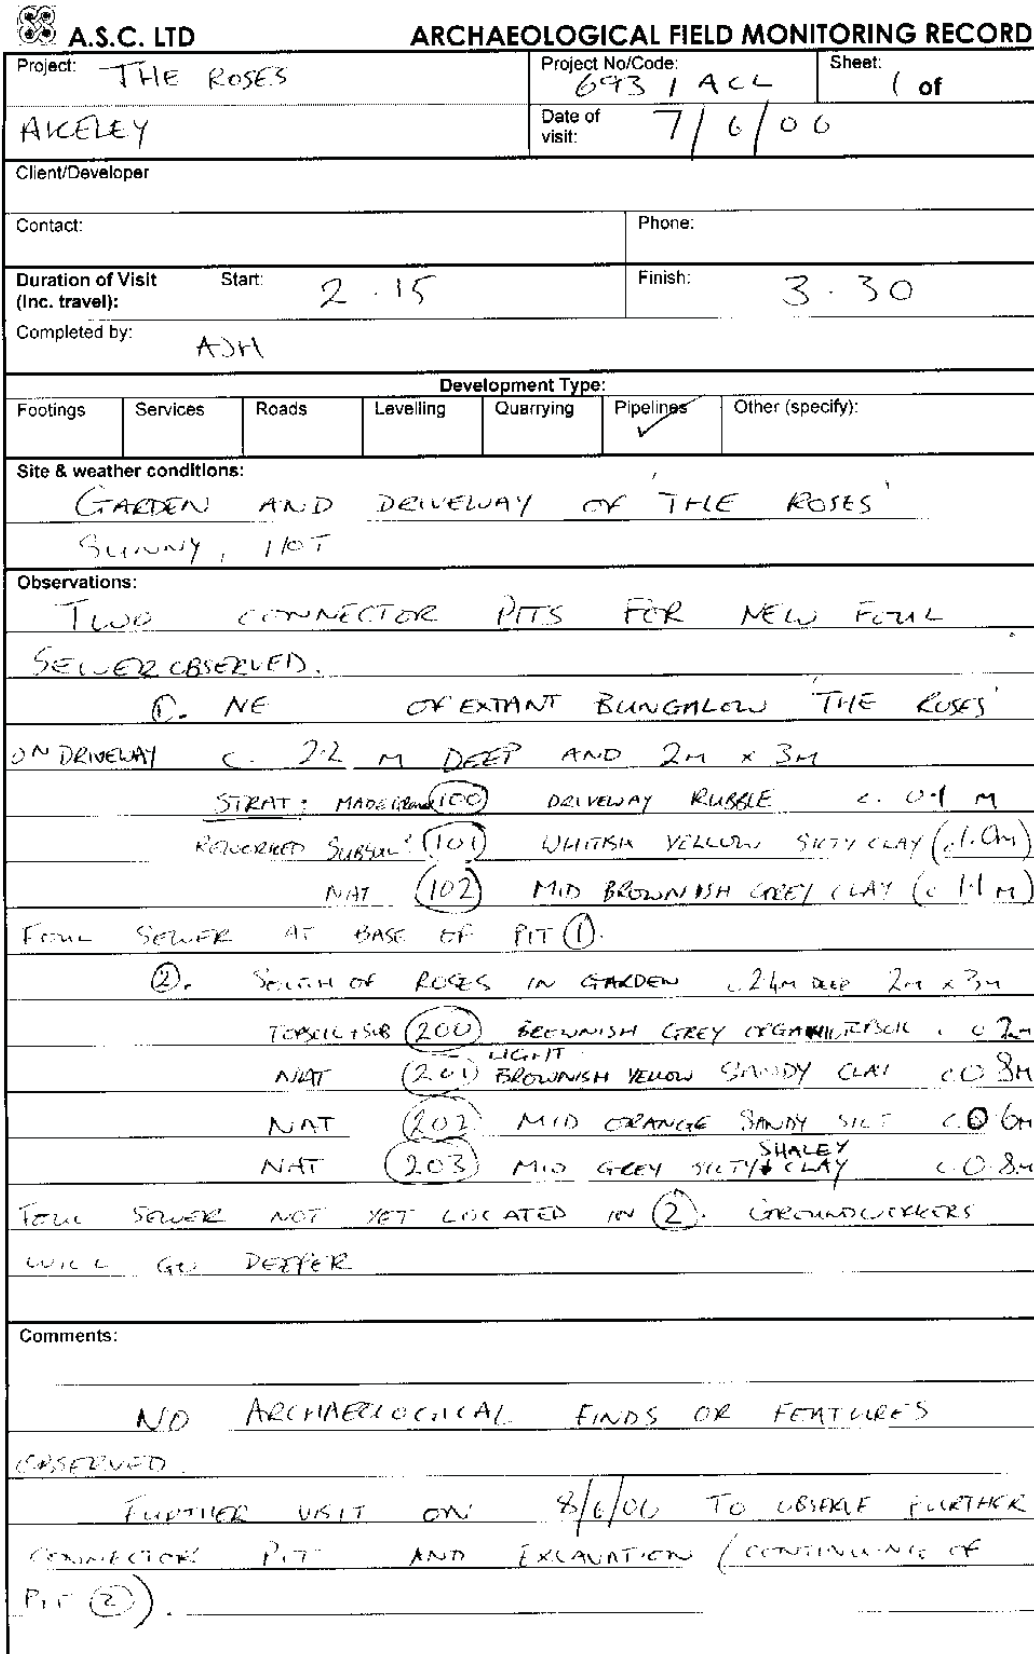 A.S.C. LTD ARCHAEOLOGICAL FIELD MONITORING RECORD
Project: THE ROSES
AKELEY
Project No/Code: 693 / ACL
Sheet: 1 of
Date of visit: 7/6/06
Client/Developer
Contact:
Phone:
Duration of Visit (Inc. travel): Start: 2.15 Finish: 3.30
Completed by: AJH
Development Type:
Footings Services Roads Levelling Quarrying Pipelines ✓ Other (specify):
Site & weather conditions:
GARDEN AND DRIVEWAY OF 'THE ROSES'
SUNNY, HOT
Observations:
TWO CONNECTOR PITS FOR NEW FOUL
SEWER OBSERVED.
①. NE OF EXTANT BUNGALOW 'THE ROSES'
ON DRIVEWAY c. 2.2 M DEEP AND 2M x 3M
STRAT: MADE GROUND (100) DRIVEWAY RUBBLE c. 0.1 M
REWORKED SUBSOIL? (101) WHITISH YELLOW SILTY CLAY (c1.0m)
NAT (102) MID BROWNISH GREY CLAY (c 1.1 M)
FOUL SEWER AT BASE OF PIT ①.
②. SOUTH OF ROSES IN GARDEN c2.4M DEEP 2M x 3M
TOPSOIL + SUB (200) BROWNISH GREY ORGANIC TOPSOIL . c 0.2m
NAT (201) LIGHT BROWNISH YELLOW SANDY CLAY c0.8M
NAT (202) MID ORANGE SANDY SILT c.0.6M
NAT (203) MID GREY SILTY SHALEY CLAY c.0.8M
FOUL SEWER NOT YET LOCATED IN ②. GROUNDWORKERS
WILL GO DEEPER
Comments:
NO ARCHAEOLOGICAL FINDS OR FEATURES
OBSERVED.
FURTHER VISIT ON 8/6/06 TO OBSERVE FURTHER
CONNECTOR PIT AND EXCAVATION (CONTINUANCE OF
PIT ②).